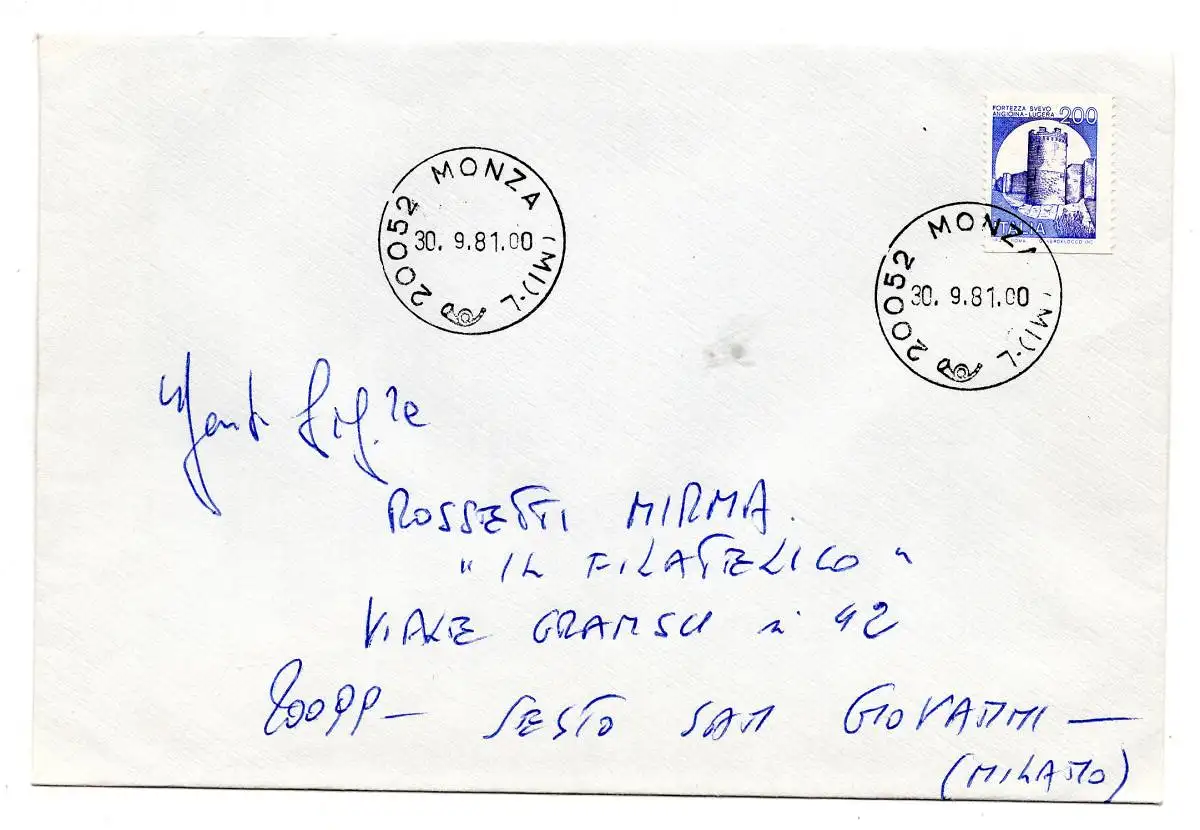 FORTEZZA SVEVO
ANGIOINA-LUCERA 200
ITALIA
20052 MONZA (MI)-L
30. 9.81.00
20052 MONZA (MI)-L
30. 9.81.00
Gent. Sig.re
ROSSETTI MIRMA.
"IL FILATELICO"
VIALE GRAMSCI n° 42
20099 - SESTO SAN GIOVANNI -
(MILANO)